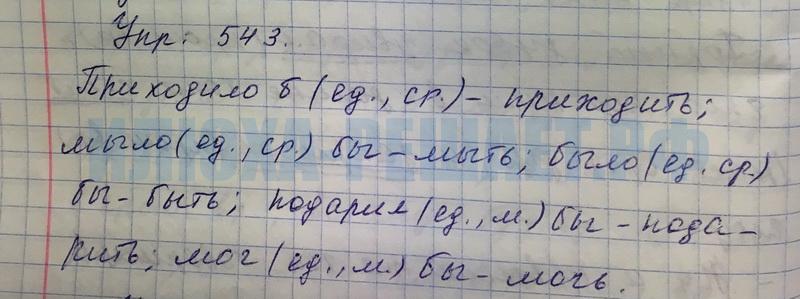 Упр. 543.
Приходило б (ед., ср.) - приходить;
мыло (ед., ср.) бы - мыть; было (ед. ср.)
бы - быть; подарил (ед., м.) бы - пода-
рить; мог (ед., м.) бы - мочь.